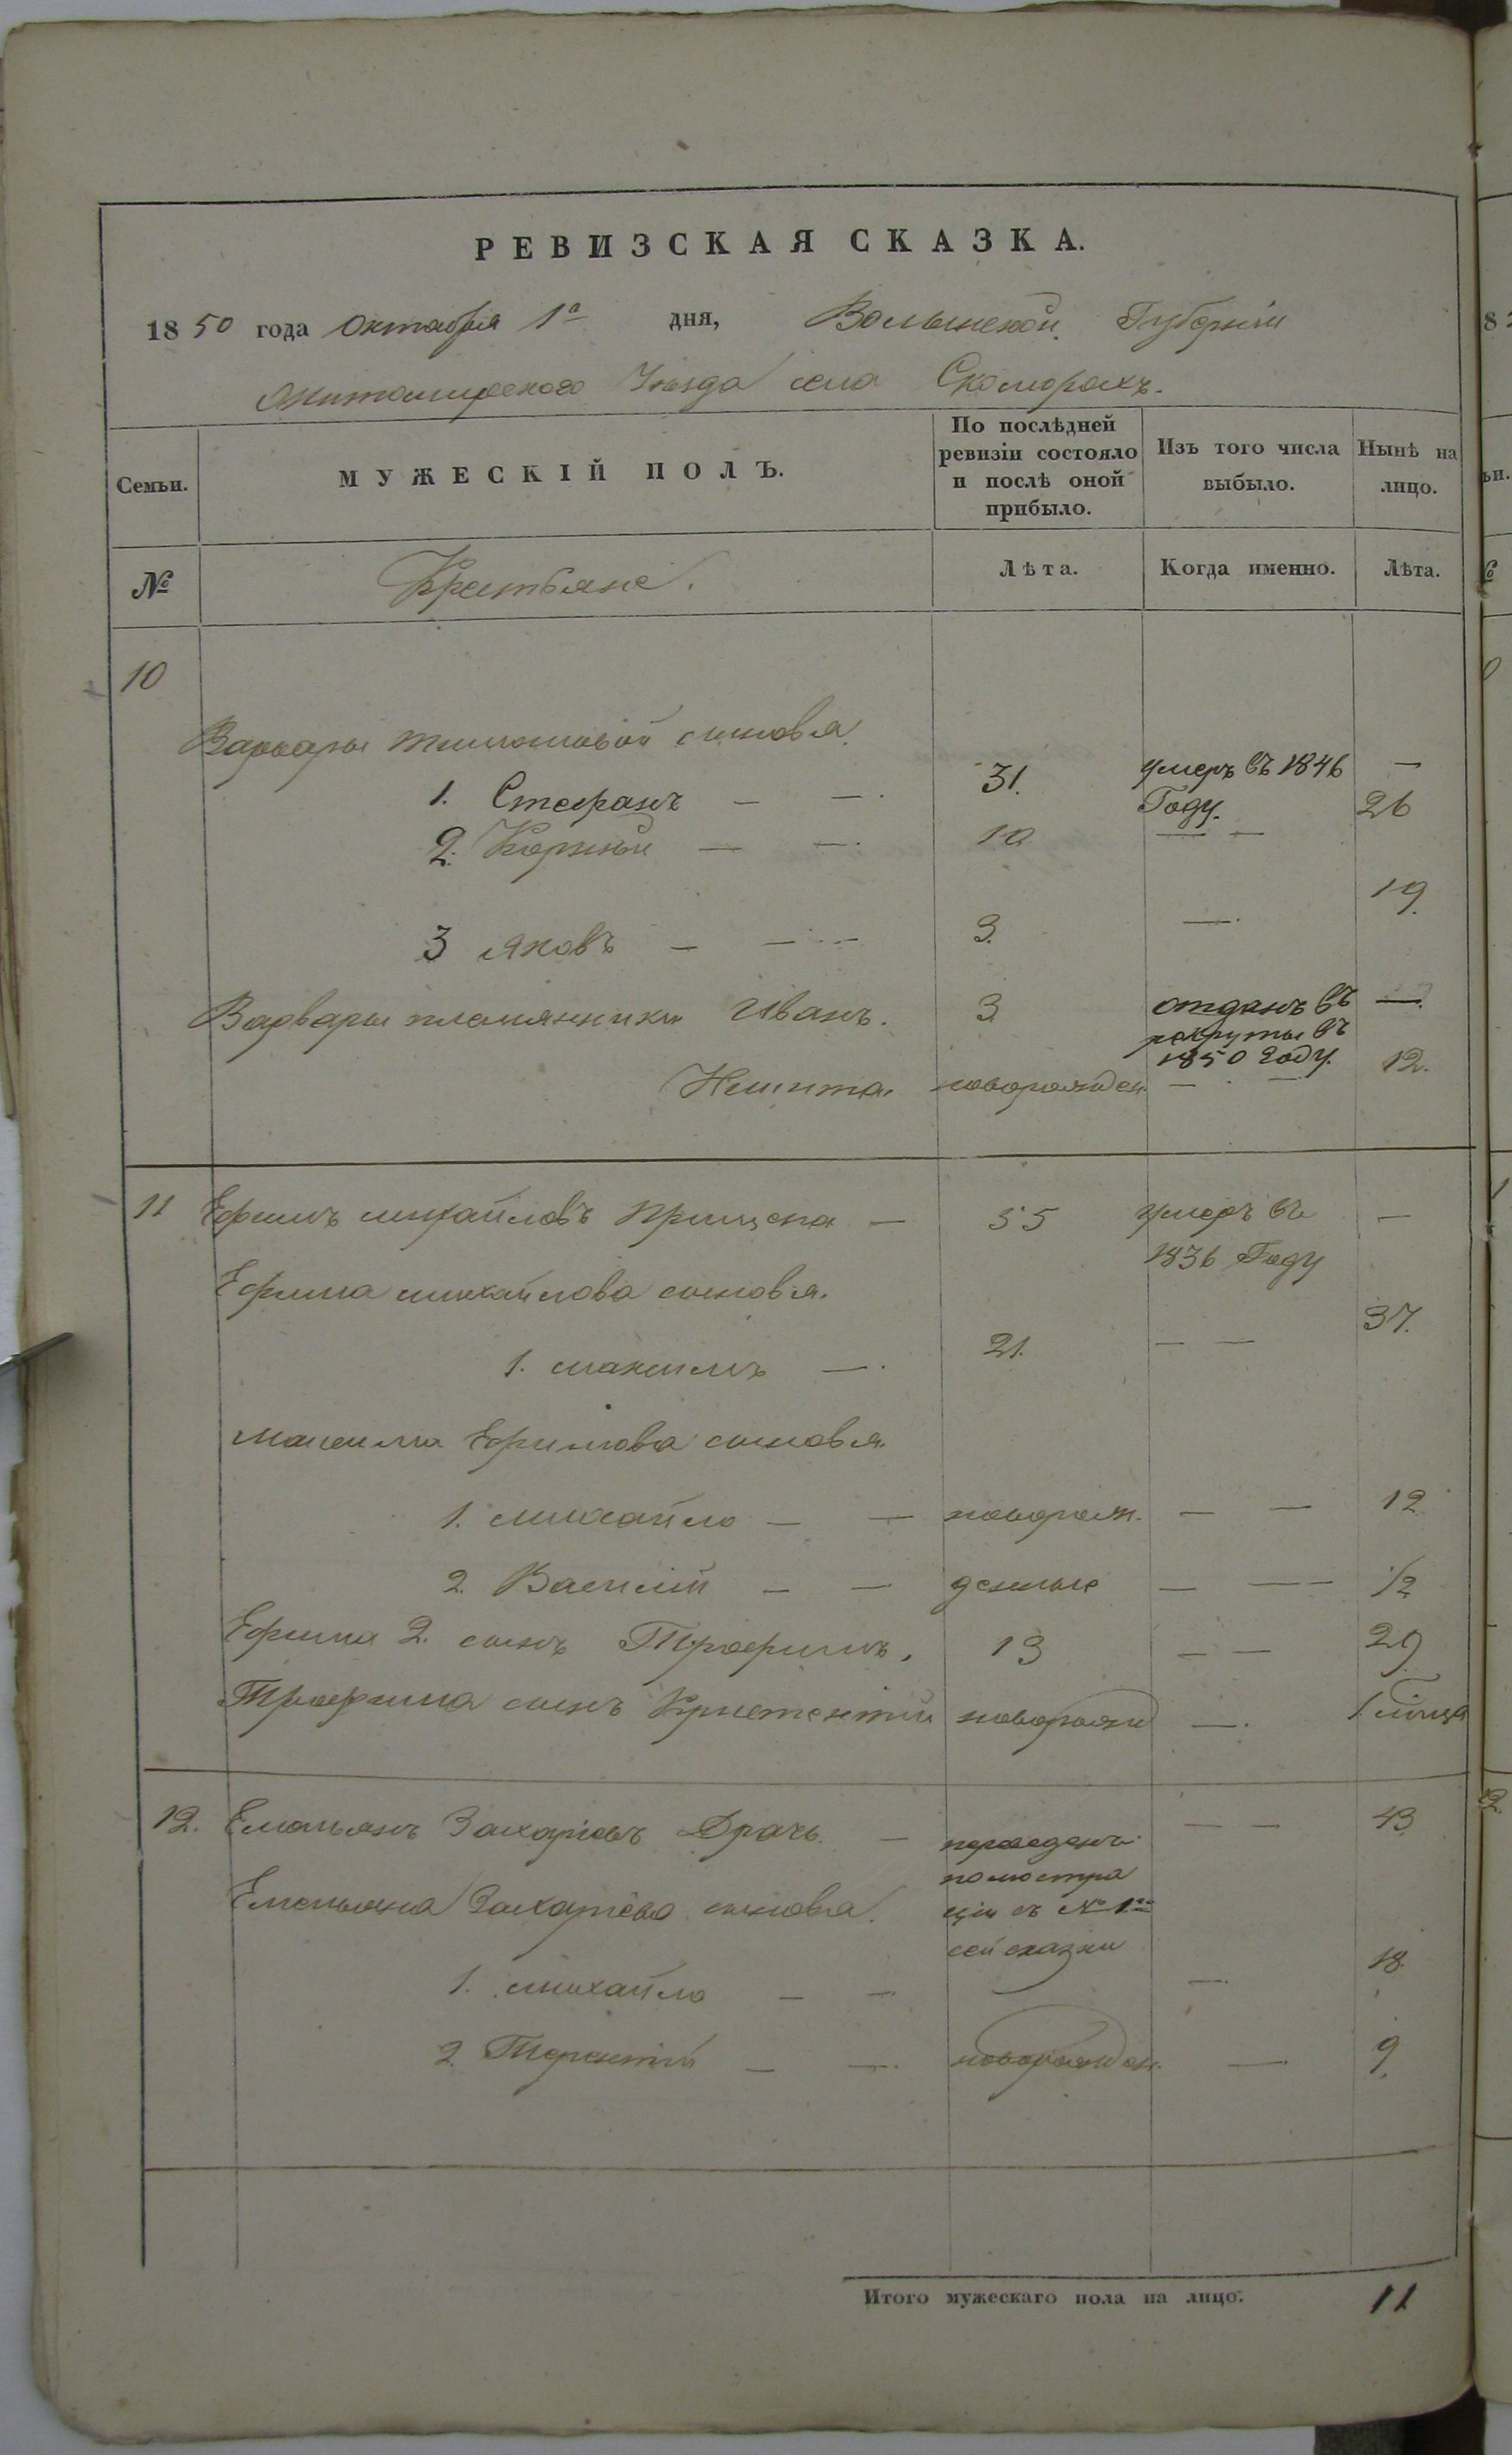 РЕВИЗСКАЯ СКАЗКА.
1850 года Октября 1го дня, Волынской Губерніи
Житомирского Уѣзда села Скоморохъ.
Семьи.
МУЖЕСКІЙ ПОЛЪ.
По послѣдней ревизіи состояло и послѣ оной прибыло.
Изъ того числа выбыло.
Нынѣ на лицо.
№
Крестьяне.
Лѣта.
Когда именно.
Лѣта.
10
Варвары сыновья
1. Стефанъ — — 31. умеръ въ 1846 Году. —
2. Корний — — 10 — — 26
3 Яковъ — — 3. — 19.
Варвары племянники Иванъ. 3 отданъ въ рекруты въ 1850 году. —
Никита. новорожден. — — 12.
11 Ефимъ Михайловъ Прищепа — 55 умеръ въ 1836 Году —
Ефима Михайлова сыновья.
1. Максимъ — 21. — — 37.
Максима Ефимова сыновья
1. Михайло — — новорож- — — 12
2. Василій — — денные — — 1/2
Ефима 2. сынъ Трофимъ. 13 — — 29
Трофима сынъ новорожд —. 1 мѣсяца
12. Емельянъ Захаріевъ Драчъ. — переведенъ по люстраціи съ № 1го сей сказки — — 43
Емельяна Захаріева сыновья.
1. Михайло — — — 18.
2. Терентій — — новорожден. — 9.
Итого мужескаго пола на лицо. 11